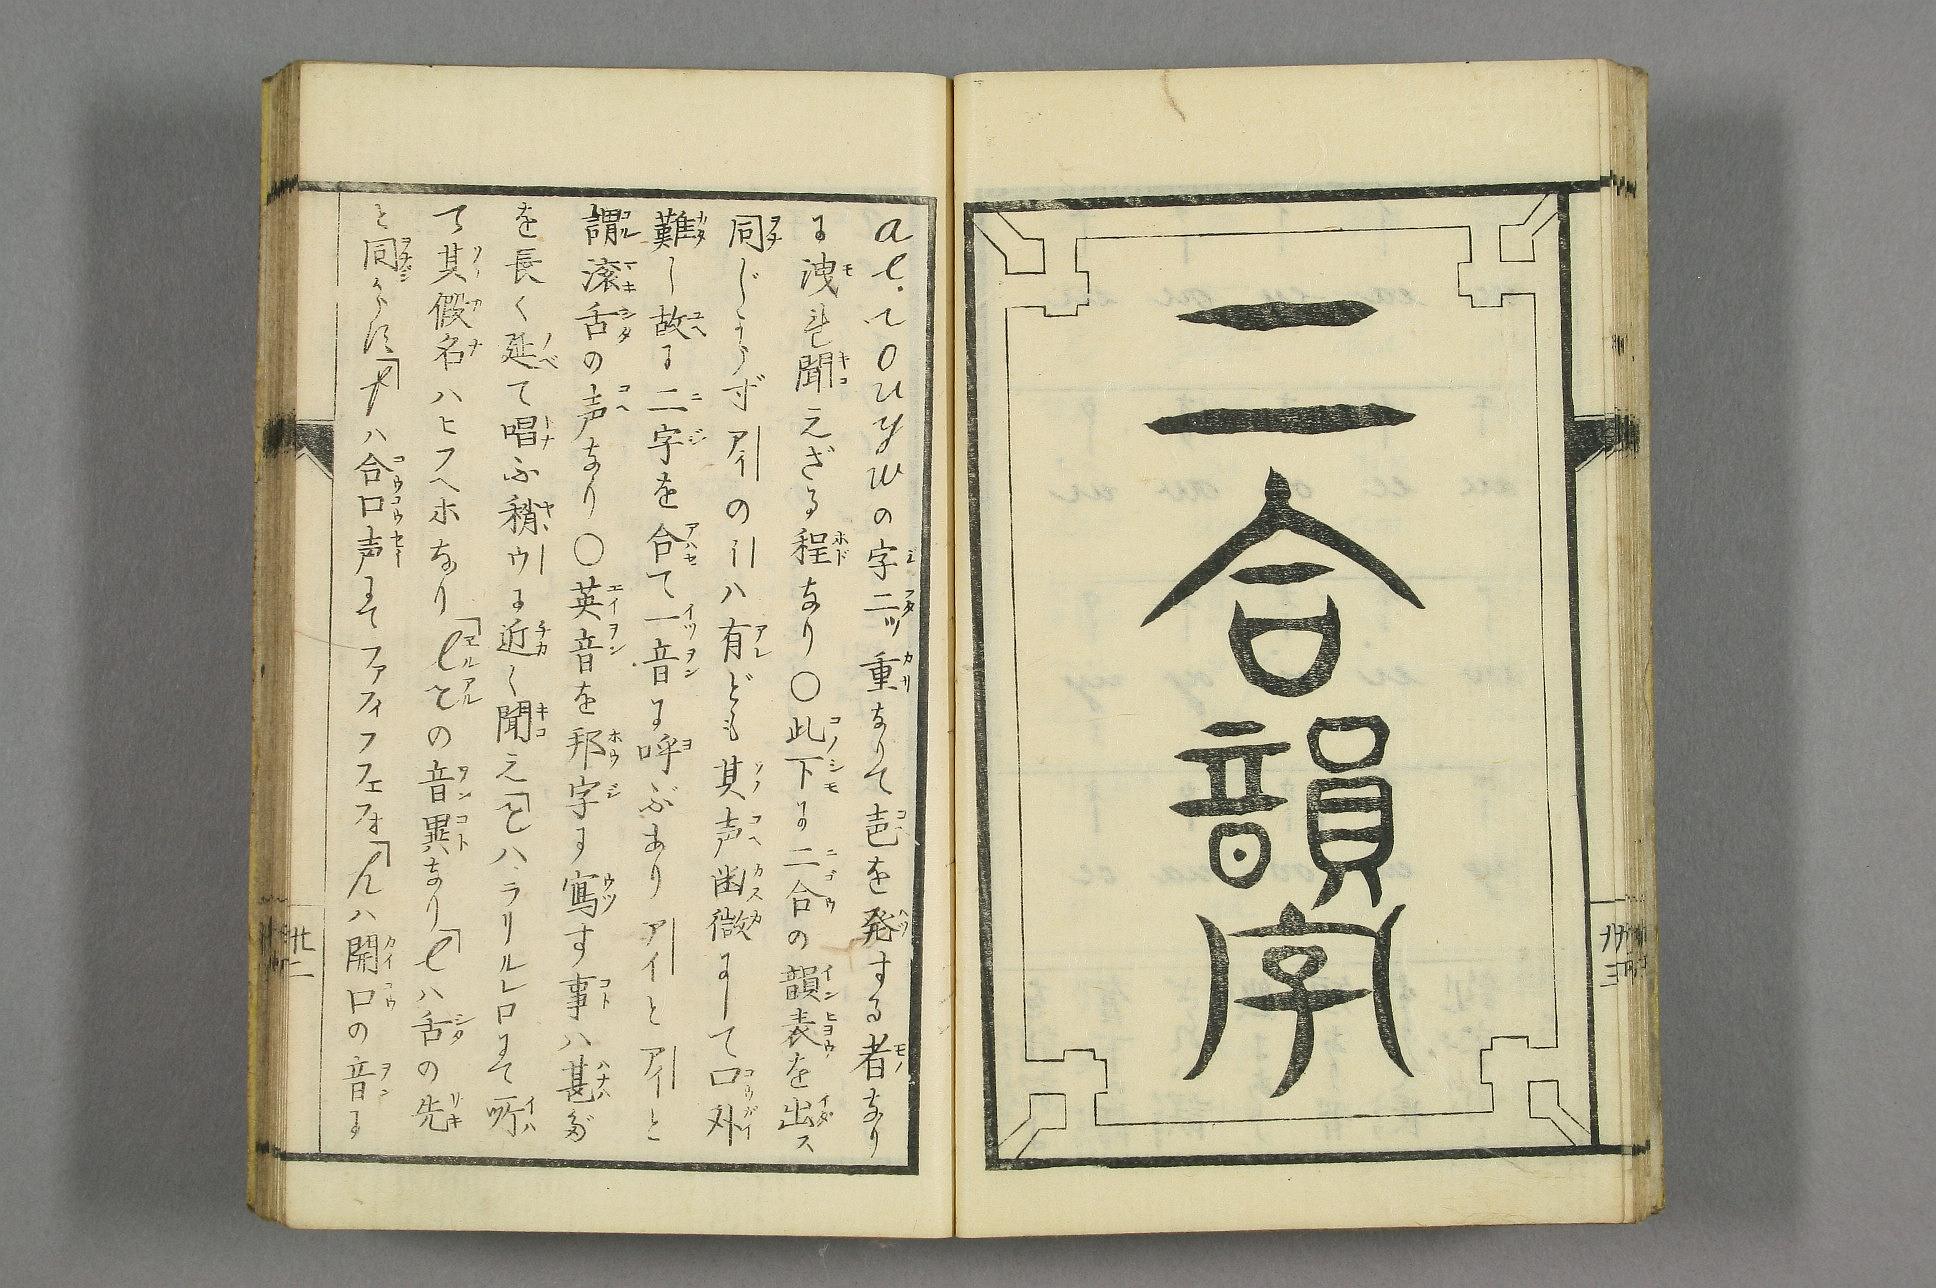 と同からず「fハ合口声にてファフィフフェフォ「hハ開口の音に
て其假名ハヒフヘホなり「l rの音異なり「lハ舌の先
を長く延て唱ふ稍ウに近く聞え「rハラリルレロにて所
謂滚舌の声なり〇英音を邦字に寫す事ハ甚だ
難し故に二字を合て一音に呼ぶありア引イとアイ引と
同じからずアイ引の引ハ有ども其声幽微にして口外
に洩れ聞えざる程なり〇此下に二合の韻表を出ス
a e i o u y wの字二ツ重なりて声を発する者なり
廿二
二合韻字
廿三